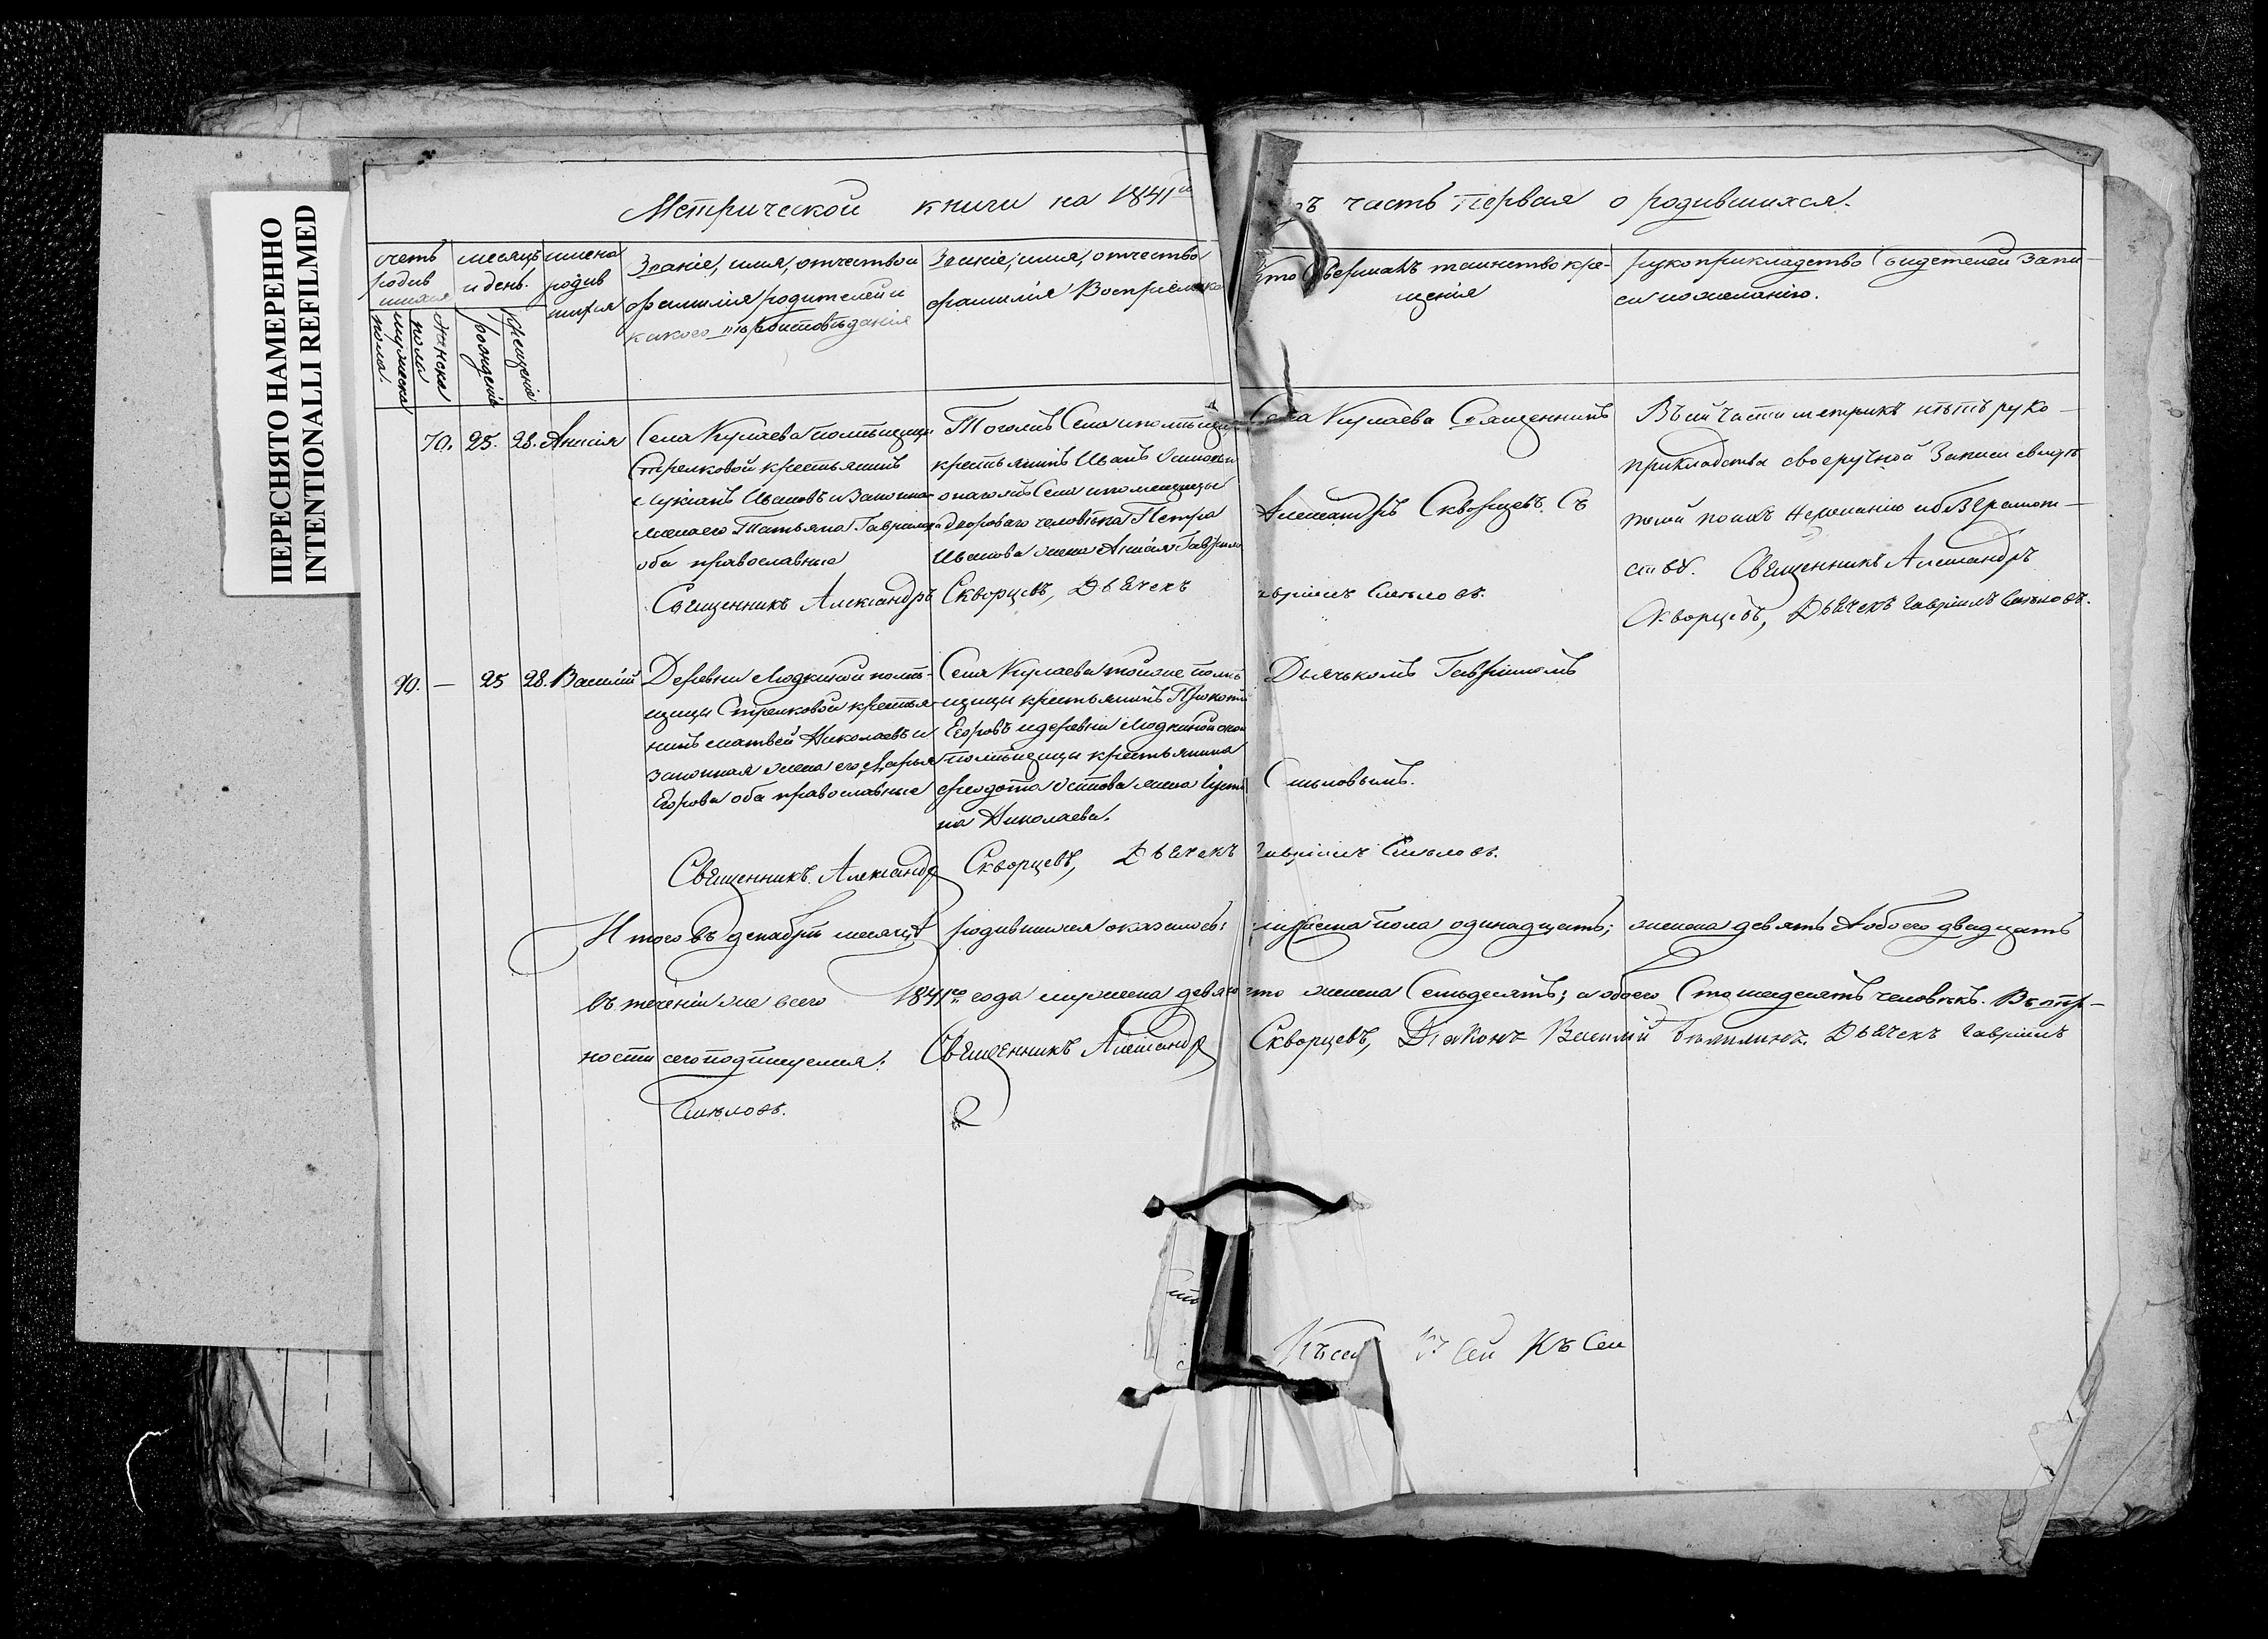 ПЕРЕСНЯТО НАМЕРЕННО
INTENTIONALLI REFILMED
Метрической книги на 1841й
часть первая о родившихся.
счетъ родив шихся
мужеска пола.
женска пола
месяцъ и день.
рождения
крещенія
имена родив шихся
Званіе, имя, отчество и
фамилія родителей и
какого вѣроисповѣданія
Званіе, имя, отчество
фамилія Воспріемника
Кто совершалъ таинство кре-
щенія
рукоприкладство свидетелей запи-
си по желанію.
70. 25. 28. Анисія
Села Кулаева помѣщицы
Стрелковой крестьянинъ
Лукіанъ Ивановъ и Законная
жена его Татьяна Гаврилова
оба православные
Тогожъ Села и помѣщицы
крестьянинъ Иванъ
онагожъ Села и помещицы
двороваго человѣка Петра
Иванова жена Анисія Гаврилова
Села Кулаева Священникъ
Александръ Скворцевъ Съ
Въ сей части метрикъ нѣтъ руко-
прикладства своеручной Записи свидѣ-
телей по ихъ нежеланію и безграмот-
ству. Священникъ Александръ
Скворцевъ, Дьячекъ Гавріилъ Смѣловъ.
Священникъ Александръ Скворцевъ, Дьячекъ Гавріилъ Смѣловъ.
90. — 25 28. Василій
Деревни Людкиной помѣ-
щицы Стрелковой крестья-
нинъ Матвей Николаевъ и
законная жена его Марья
Егорова оба православные
Села Кулаева тойже помѣ
щицы крестьянинъ Прокопій
Егоровъ и деревни Людкиной оной
помѣщицы крестьянина
Федота Осипова жена Усти
на Николаева.
Дьячькомъ Гавріиломъ
Смѣловымъ.
Священникъ Александръ Скворцевъ, Дьячекъ Гавріилъ Смѣловъ.
Итого въ декабрѣ месяцѣ родившихся оказалось: мужеска пола одинадцать; женска девять А обоего двадцать
въ теченіи же всего 1841го года мужеска девяносто женска Семьдесятъ; а обоего Сто шесдесятъ человѣкъ. Въ вѣр-
ности сего подпишемся: Священникъ Александръ Скворцевъ, Діаконъ Василій Дьячекъ Гавріилъ
Смѣловъ.
Къ сей Къ Сей Къ Сей